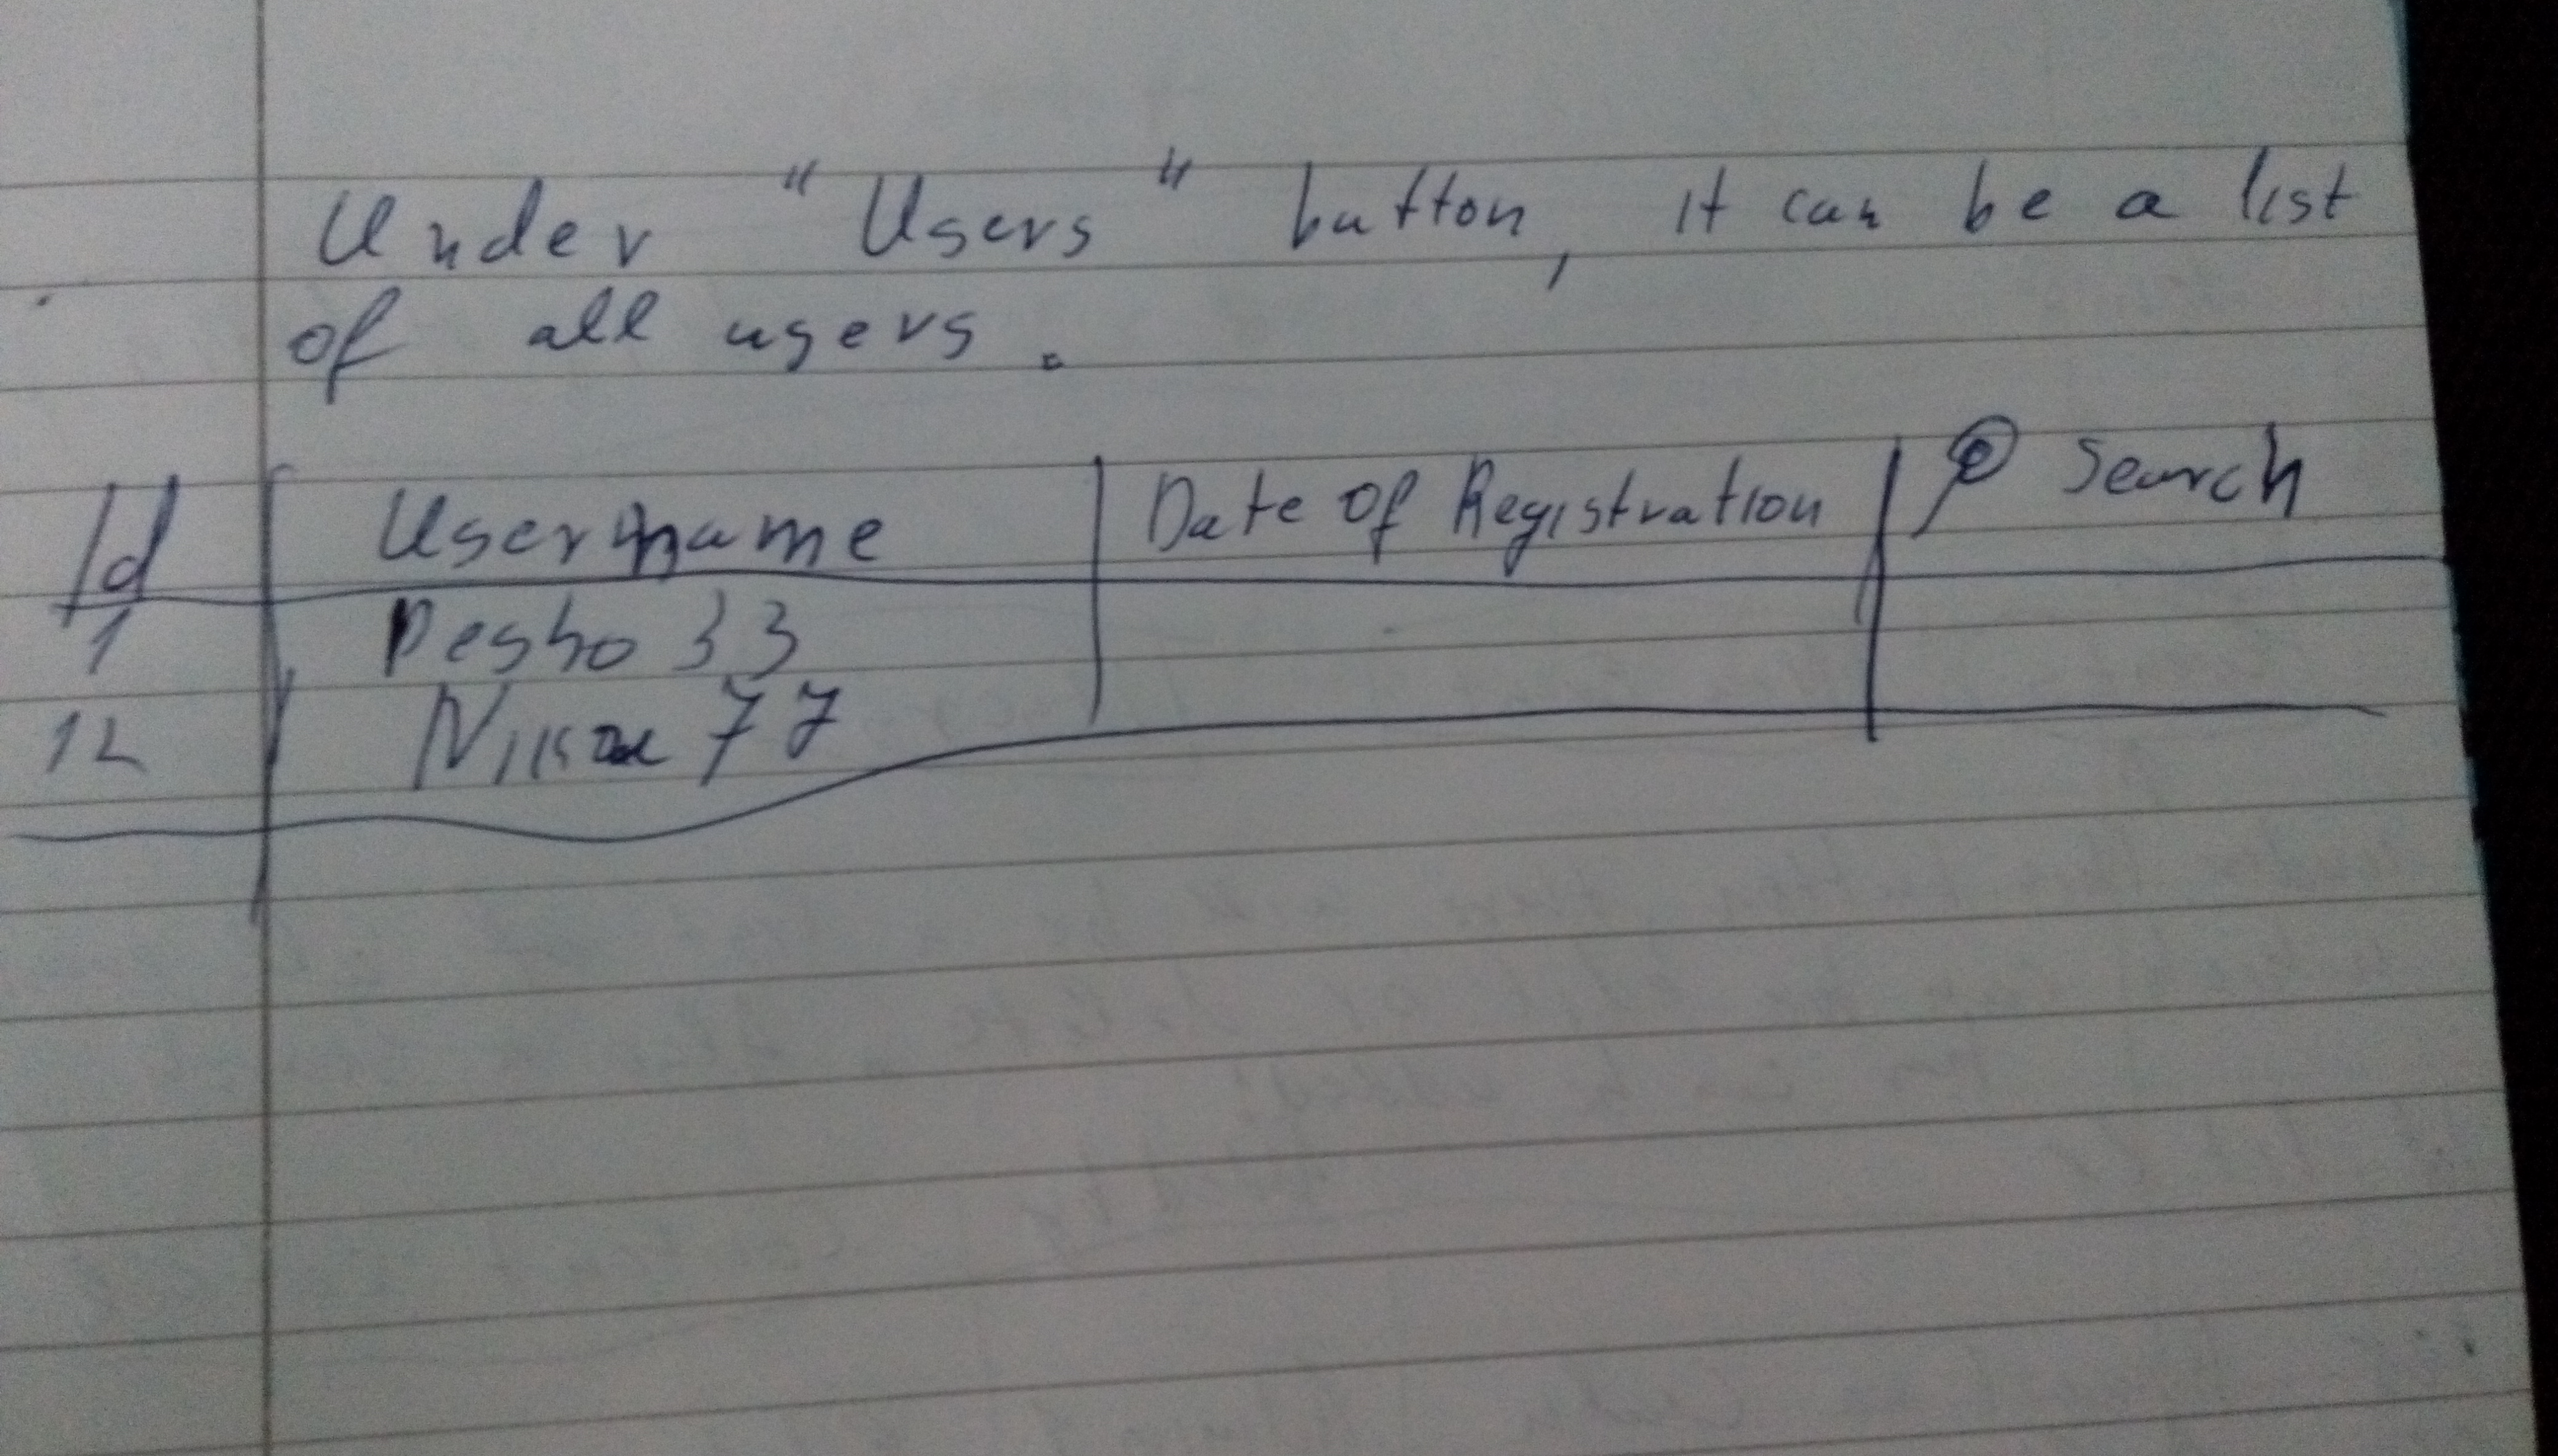 Under "Users" button, it can be a list
of all users.
Id Username Date of Registration Search
1 Pesho33
12